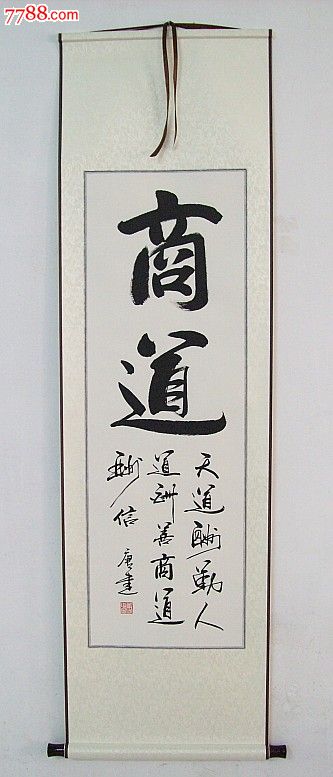 7788.com
商道
天道酬勤人
道酬善商道
酬信
唐建